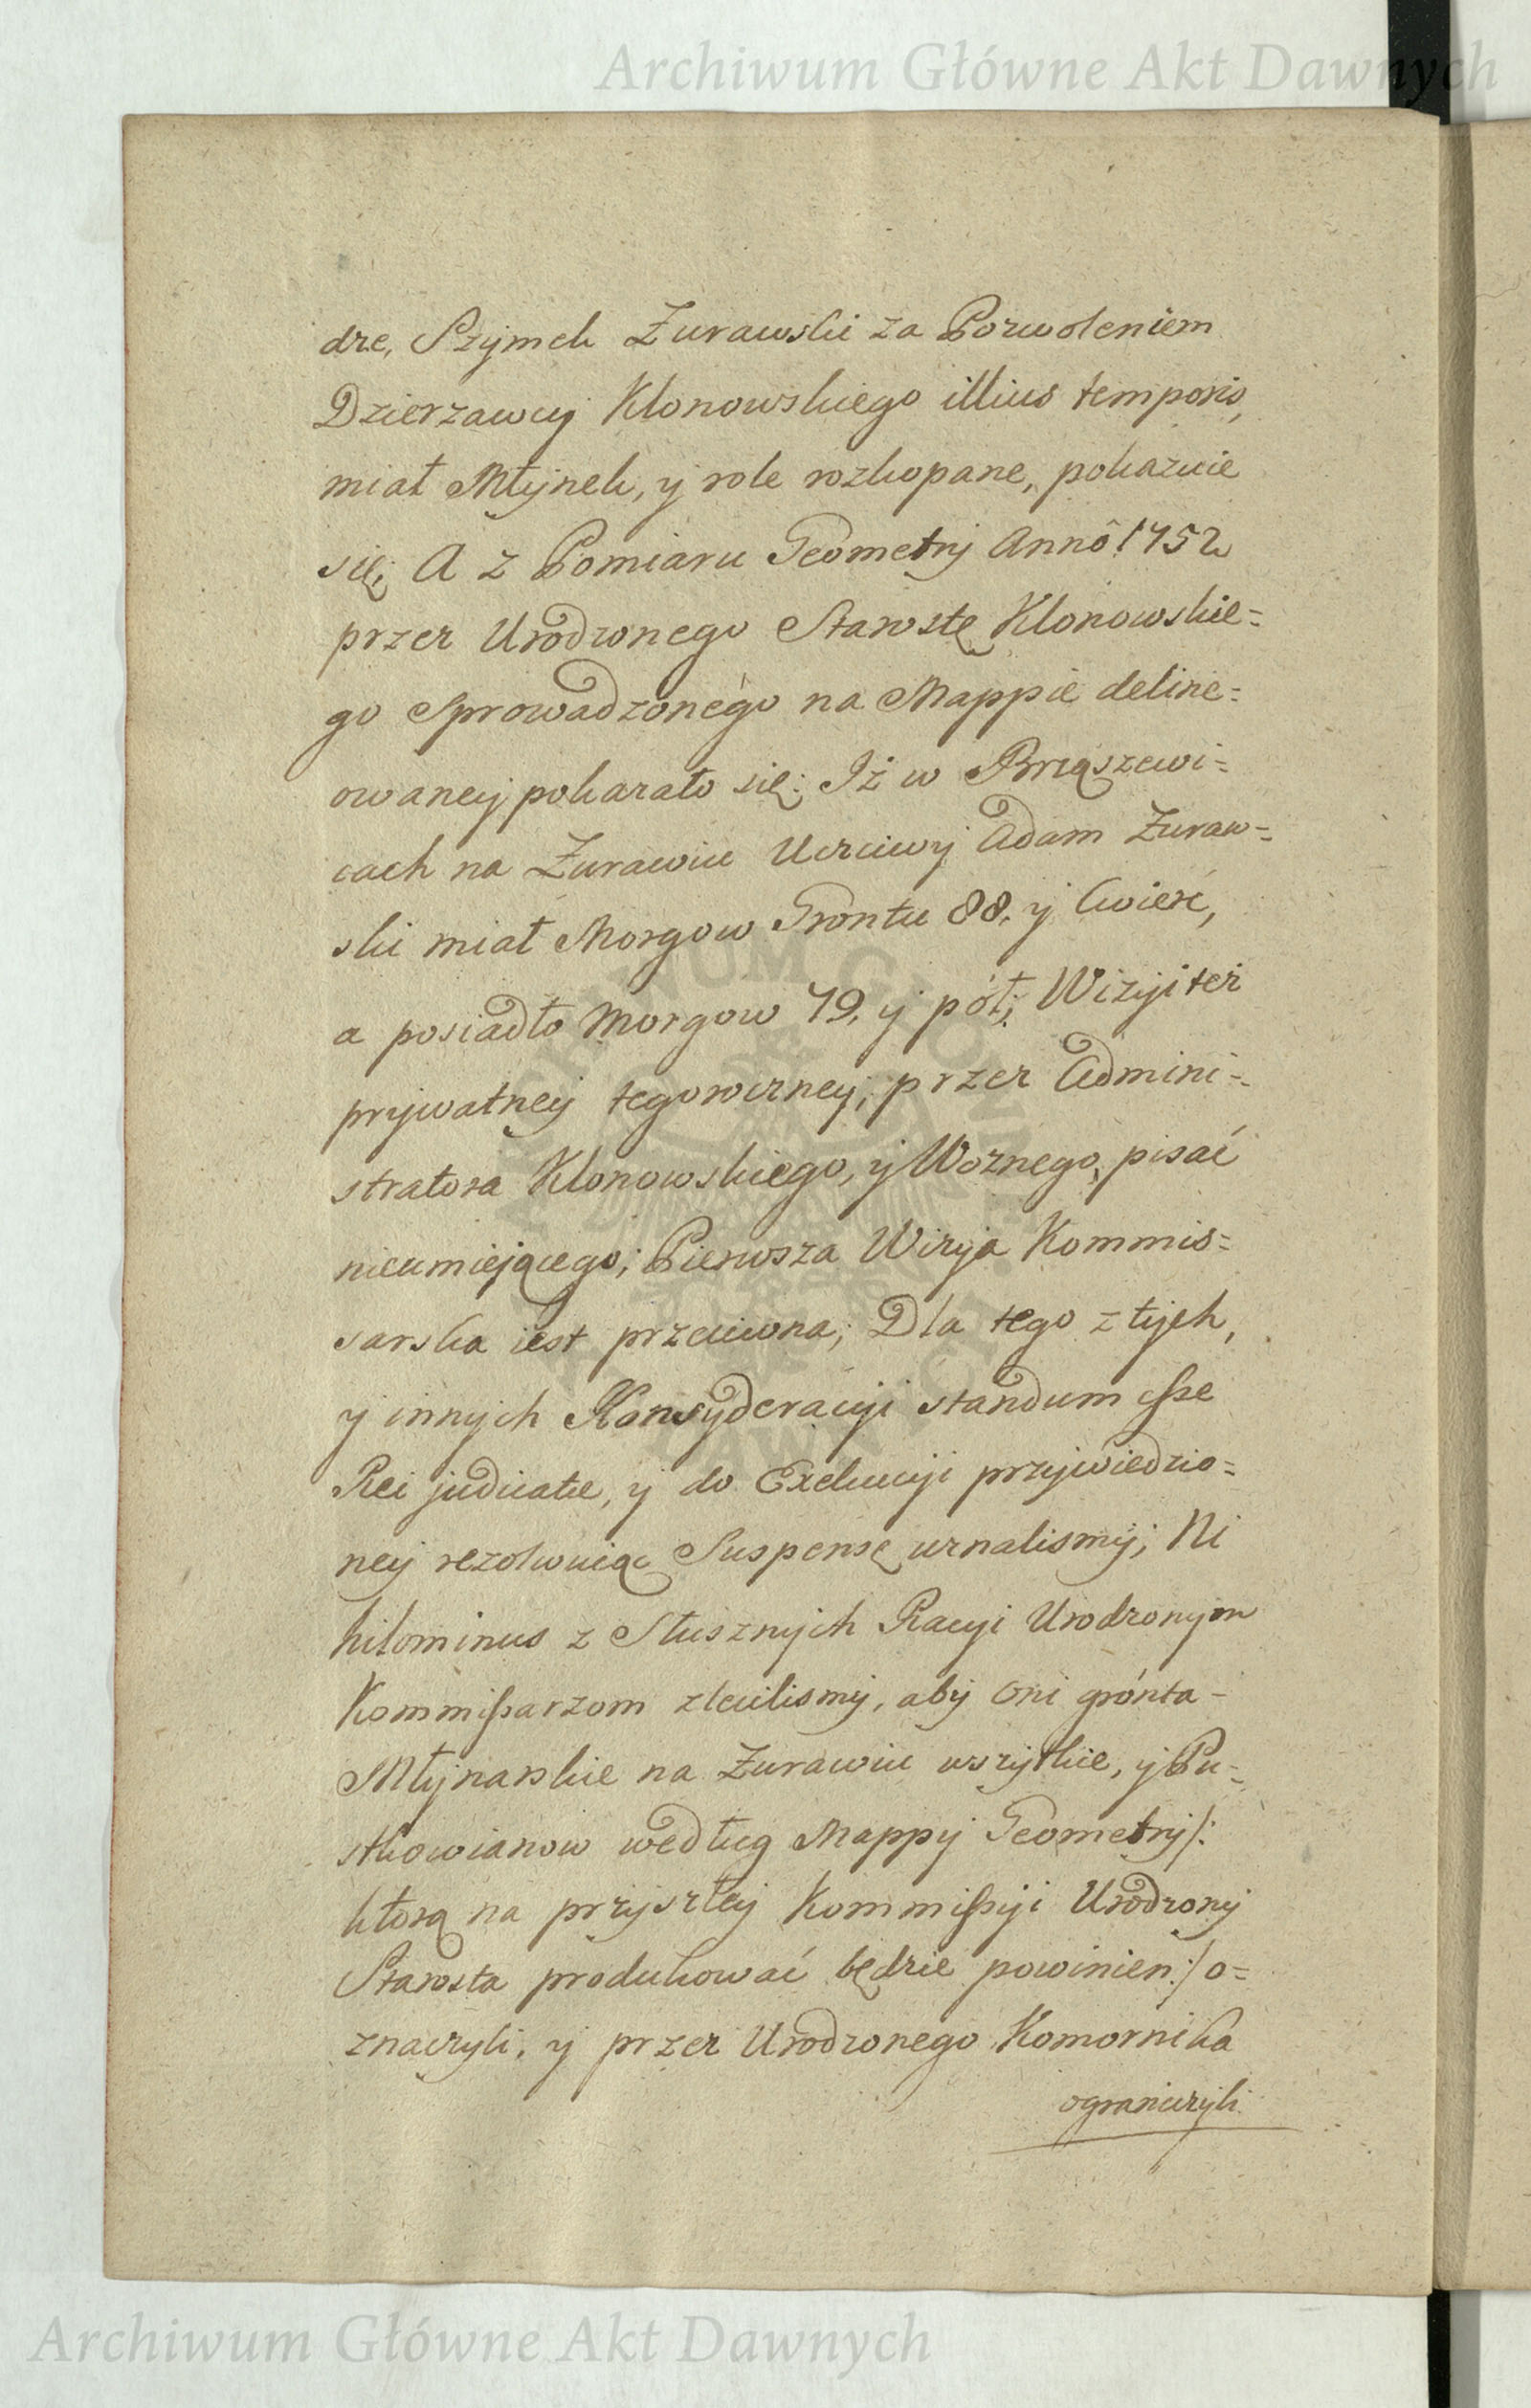 Archiwum Główne Akt Dawnych
dze, Szymek Zurawski za Pozwoleniem
Dzierzawcy Klonowskiego illius temporis,
miał Młynek, y role rozkopane, pokazuie
się; A z Pomiaru Geometry Annô 1752
przez Urodzonego Starostę Klonowskie=
go Sprowadzonego na Mappie deline=
owaney pokazało się: Iż w Brząszewi=
cach na Zurawiu Uczciwy Adam Zuraw=
ski miał Morgow Grontu 88. y Cwierć,
a posiadło Morgow 79. y pół; Wizyi też
prywatney tegoroczney, przez Admini=
stratora Klonowskiego, y Woznego, pisać
nieumiejącego; Pierwsza Wizyja Kommis=
sarska iest przeciwna; Dla tego z tych,
y innych Konsyderacyi standum esse
Rei judicatæ, y do Exekucyi przywiedzio=
ney rezolwuiąc Suspensę uznalismy; Ni
hilominus z Słusznych Racyi Urodzonym
Kommissarzom zlecilismy, aby oni grónta
Młynarskie na Zurawiu wszytkie, y Pu=
stkowianow według Mappy Geometry /:
ktorą na przyszłey Kommissyi Urodzony
Starosta produkować będzie powinien :/ o=
znaczyli, y przez Urodzonego Komornika
ograniczyli
Archiwum Główne Akt Dawnych